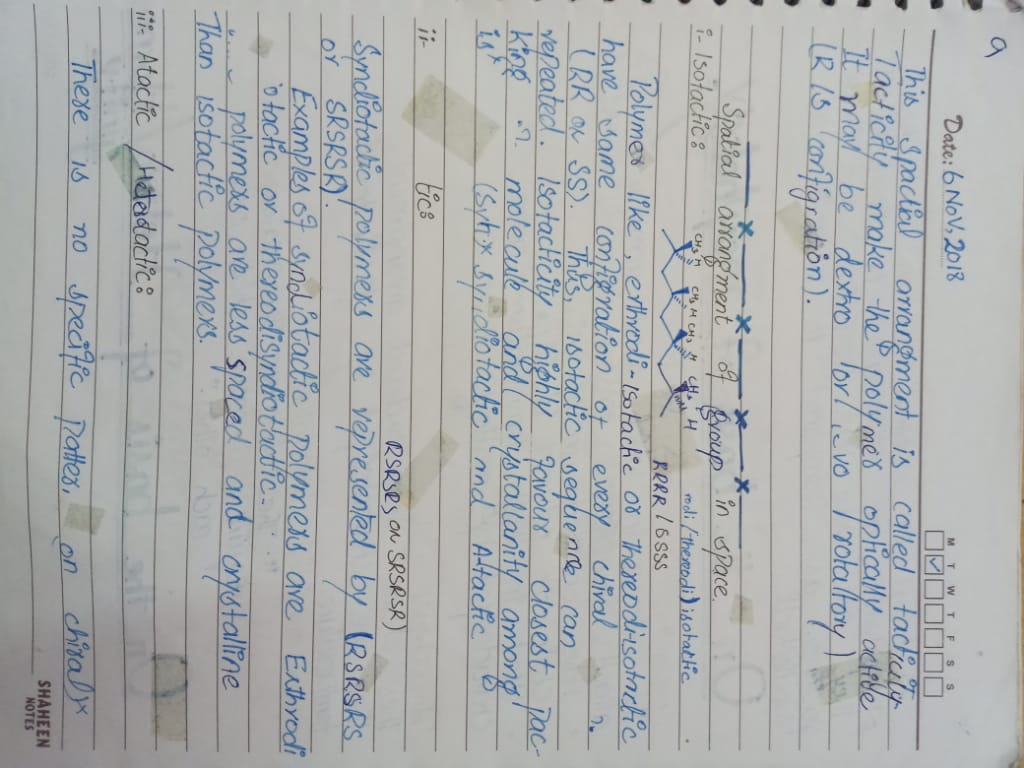 9
Date: 6 Nov, 2018
M T W T F S S
This spactial arrangment is called tacticity.
Tacticity make the polymer optically active
It may be dextro or rotaltory)
(R is configration).
Spatial arrangment of group in space.
i- Isotactic:
CH3 H CH3 H CH3 H CH3 H
RRRR / SSSS
isotactic
Polymer like, erthrodi-Isotactic or thereodisotactic
have same configration of every chiral
(RR or SS). This, isotactic sequence can
repeated. Isotacticity highly favour closest pac-
king molecule and crystallanity among
Syndiotactic and Atactic
ii- tic:
RSRSR or SRSRSR)
Syndiotactic polymers are represented by (RSRSRS
or SRSRSR).
Examples of syndiotactic polymers are Erthrodi
otactic or thereodisyndiotactic.
polymers are less spaced and crystalline
Than isotactic polymers.
iii- Atactic / Hetotactic:
There is no specific patter, on chirality
SHAHEEN
NOTES